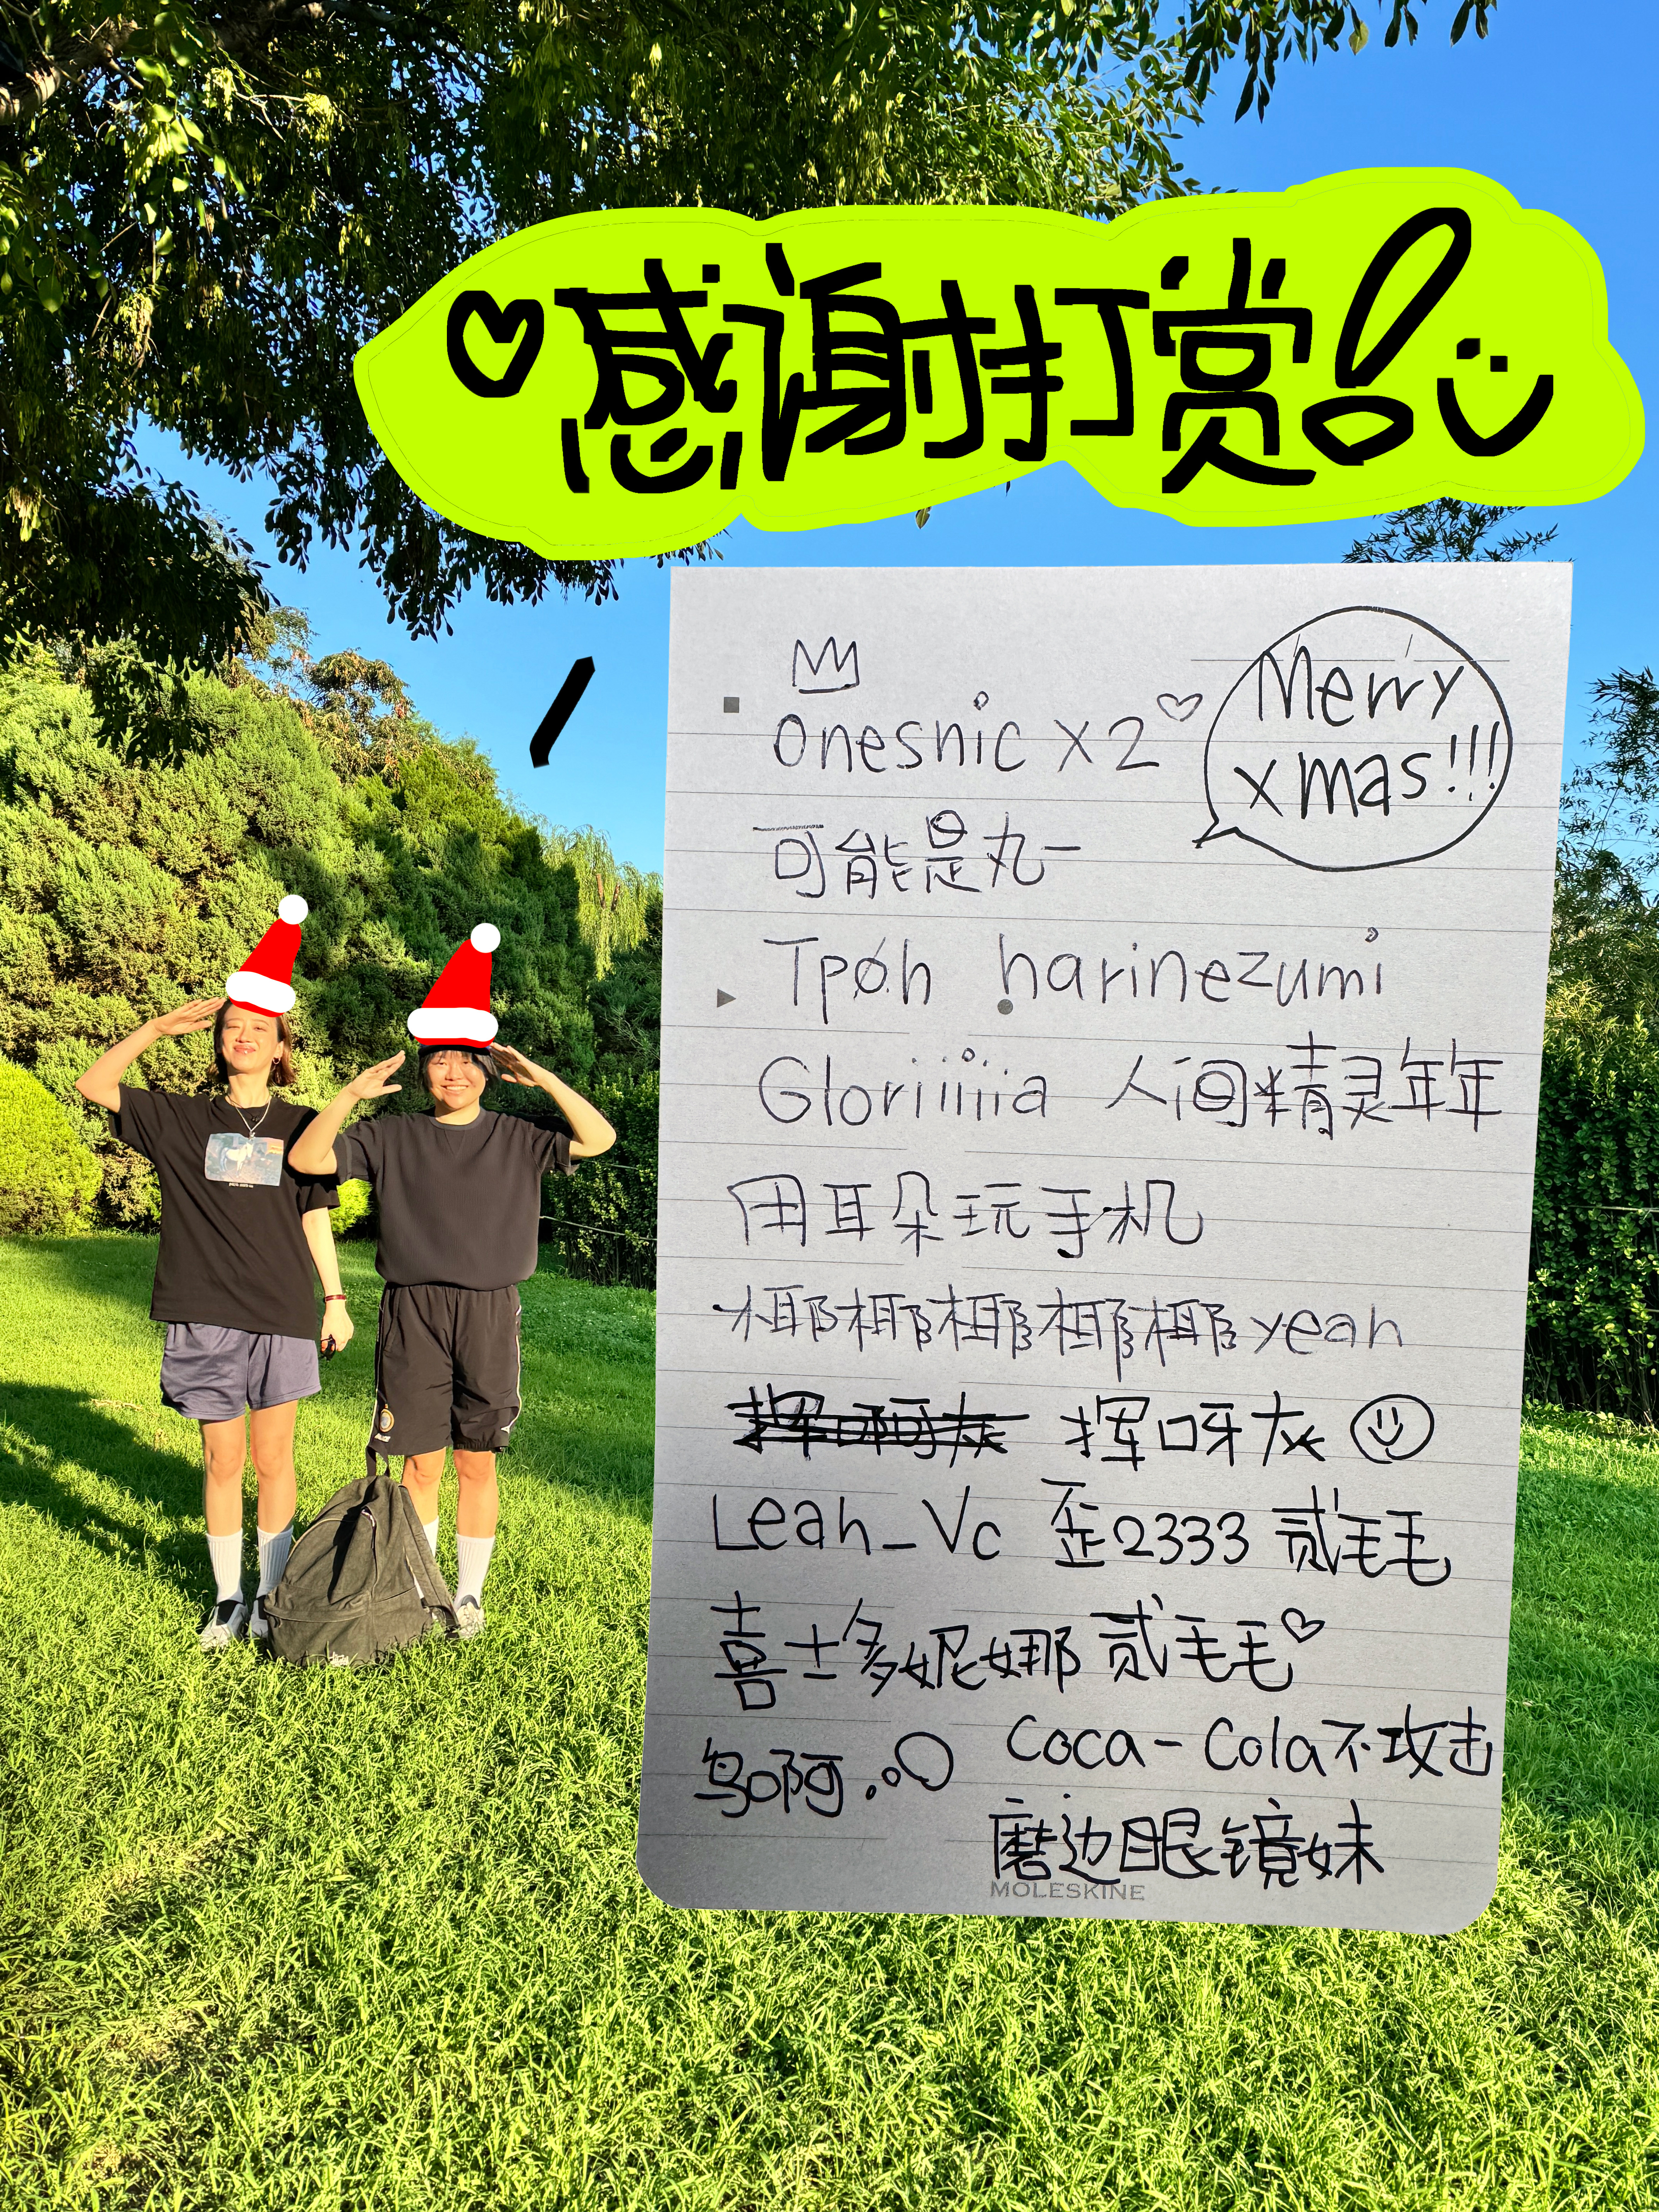 ♡感谢打赏!
Merry
xmas!!!
onesnic x2♡
可能是丸一
Tpøh harinezumi
Gloriiiiia 人间精灵年年
用耳朵玩手机
椰椰椰椰椰yeah
挥呀灰
Leah_Vc 歪2333 贰毛毛
喜士多妮娜 贰毛毛♡
乌啊
Coca-Cola不攻击
磨边眼镜妹
MOLESKINE